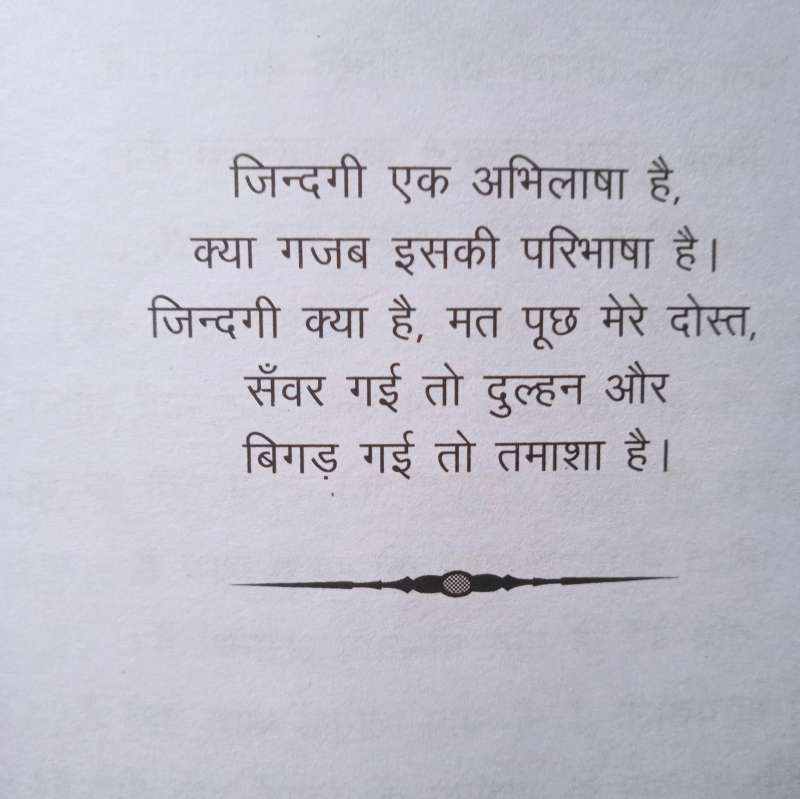 जिन्दगी एक अभिलाषा है,
क्या गजब इसकी परिभाषा है।
जिन्दगी क्या है, मत पूछ मेरे दोस्त,
सँवर गई तो दुल्हन और
बिगड़ गई तो तमाशा है।